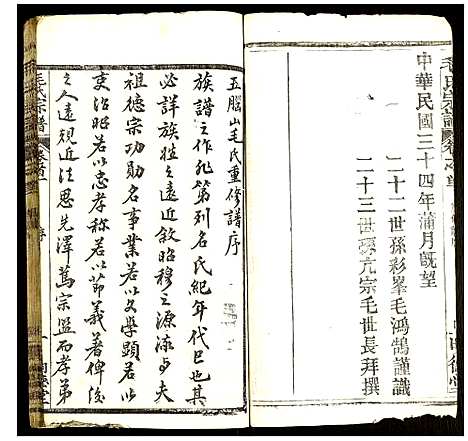 毛氏宗譜
中華民國三十四年蒲月既望
二十二世孫彩峯毛鴻鵠謹識
二十三世孫亢宗毛世長拜撰
五腦山毛氏重修譜序
族譜之作非第列名氏紀年代已也其
必詳族姓之遠近敘昭穆之源流与夫
祖德宗功勛名事業若以文學顯若以
吏治昭若以忠孝称若以節義著俾後
之人遠視近法思先澤篤宗盟而孝弟
毛氏宗譜
卷首
序